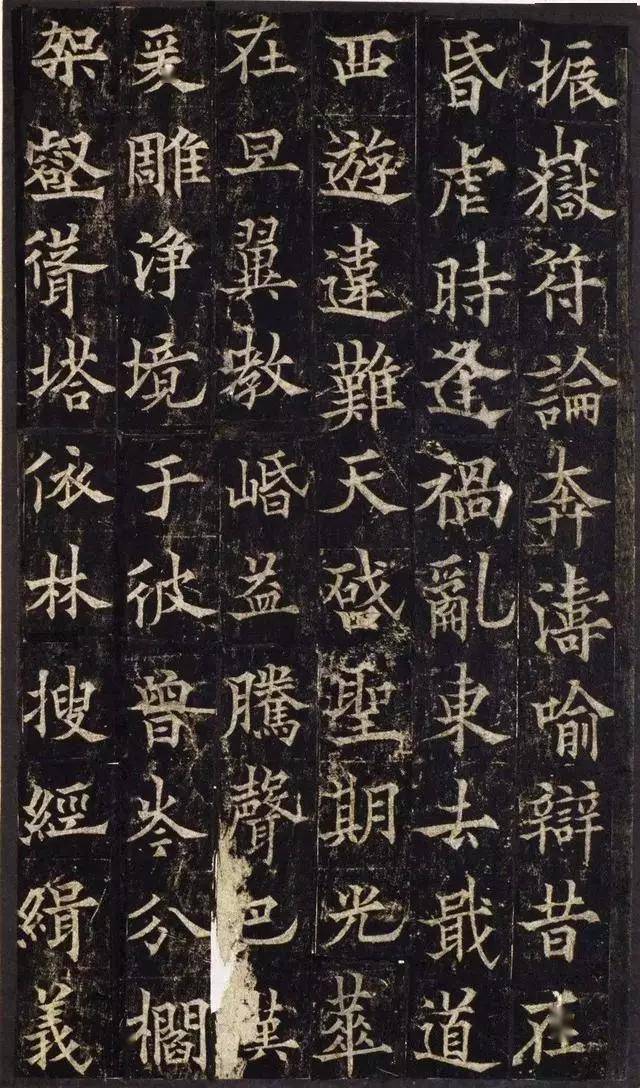 振嶽符論奔濤喻辯昔在
昏虐時逢禍亂東去戢道
西遊違難天啓聖期光華
在旦翼教崏益騰聲巴漢
爰雕净境于彼曾岑分櫩
架壑聳塔依林搜經緝義